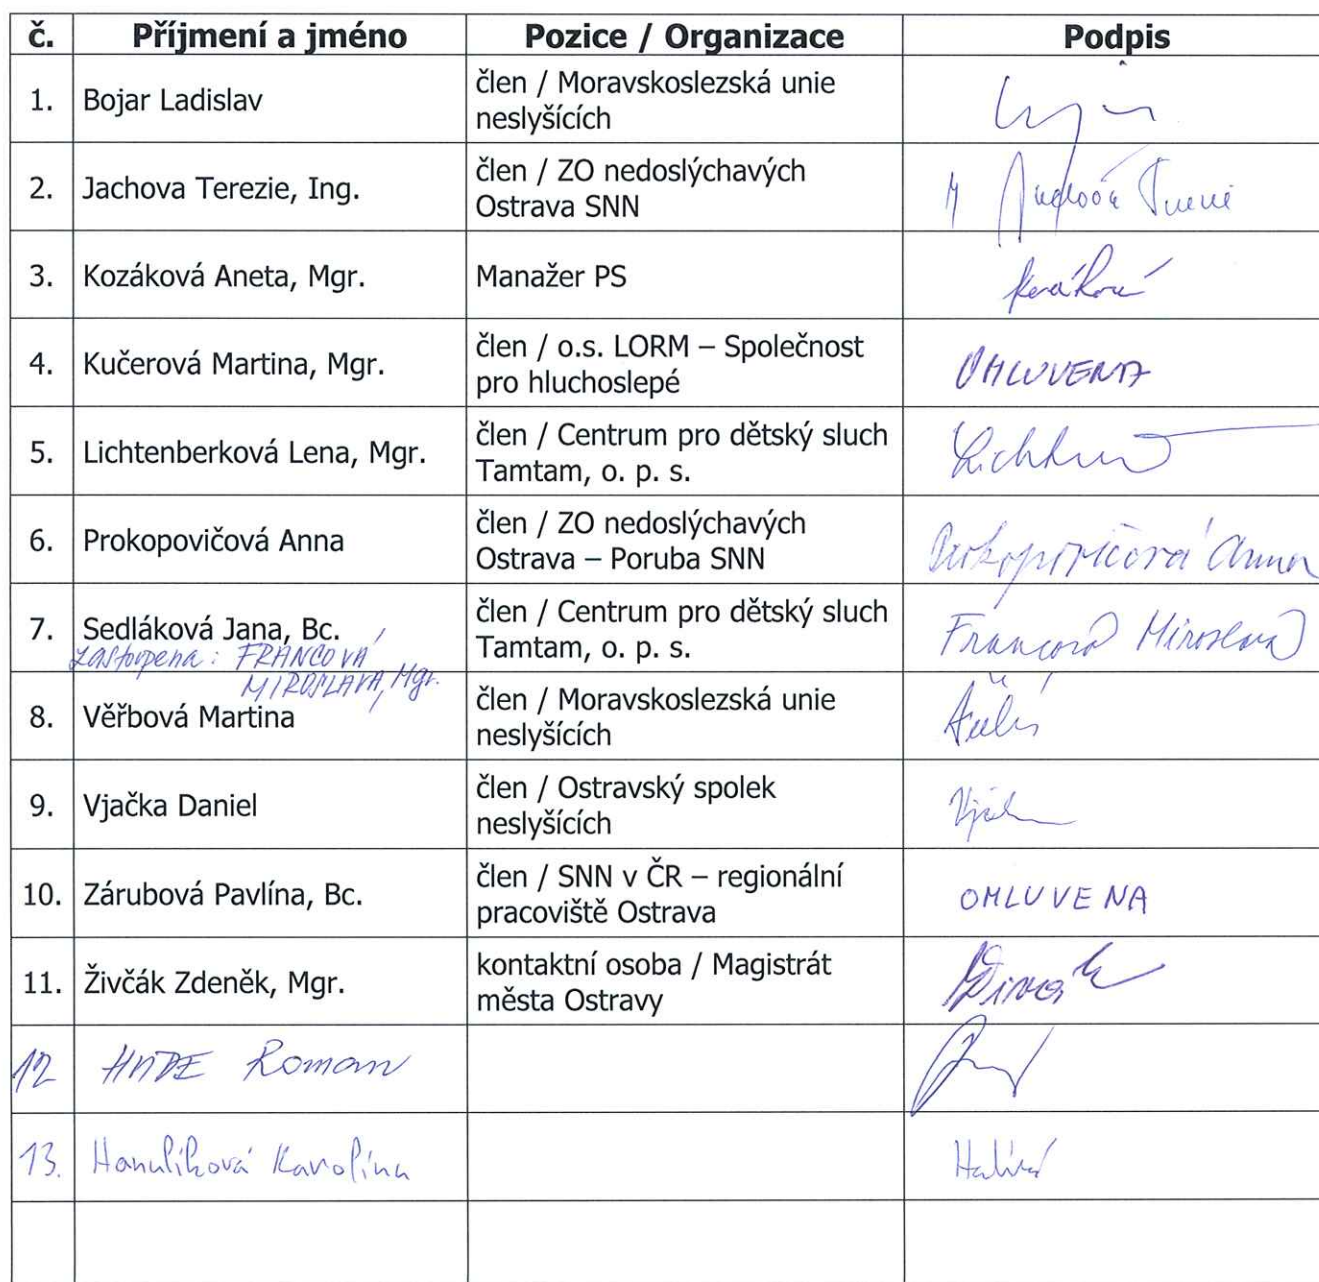 č. Příjmení a jméno Pozice / Organizace Podpis
1. Bojar Ladislav člen / Moravskoslezská unie
neslyšících
2. Jachova Terezie, Ing. člen / ZO nedoslýchavých
Ostrava SNN
3. Kozáková Aneta, Mgr. Manažer PS
4. Kučerová Martina, Mgr. člen / o.s. LORM – Společnost
pro hluchoslepé
OMLUVENA
5. Lichtenberková Lena, Mgr. člen / Centrum pro dětský sluch
Tamtam, o. p. s.
6. Prokopovičová Anna člen / ZO nedoslýchavých
Ostrava – Poruba SNN
Prokopovičová Anna
7. Sedláková Jana, Bc. člen / Centrum pro dětský sluch
Tamtam, o. p. s.
Francová Miroslava
zastoupena: FRANCOVÁ
MIROSLAVA, Mgr.
8. Věřbová Martina člen / Moravskoslezská unie
neslyšících
9. Vjačka Daniel člen / Ostravský spolek
neslyšících
10. Zárubová Pavlína, Bc. člen / SNN v ČR – regionální
pracoviště Ostrava
OMLUVENA
11. Živčák Zdeněk, Mgr. kontaktní osoba / Magistrát
města Ostravy
12 Roman
13. Hanulíková Karolína